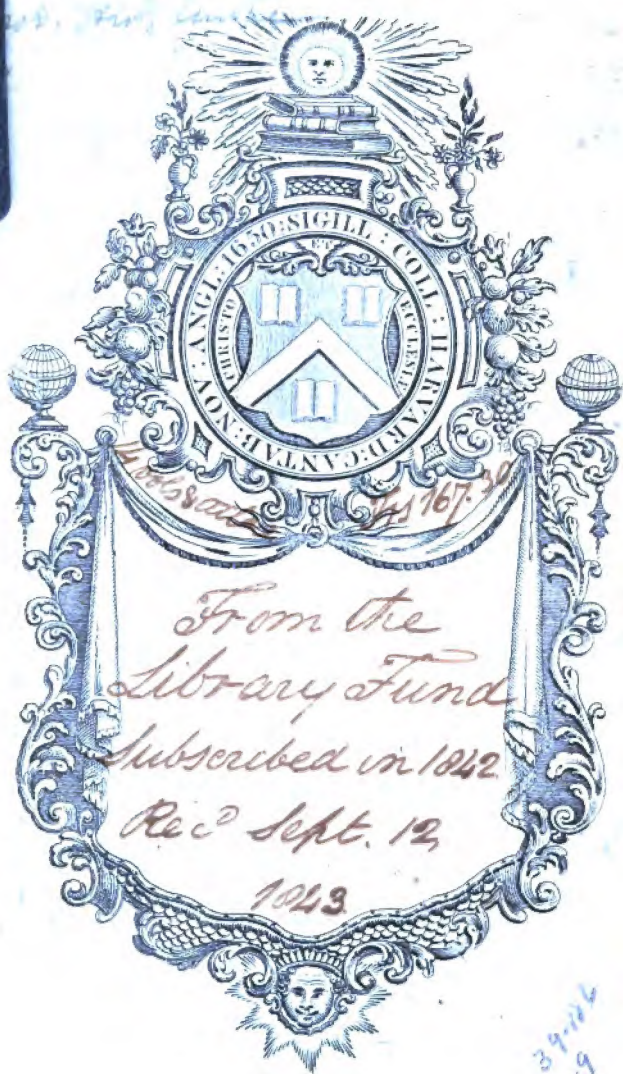 SIGILL : COLL : HARVARD : CANTAB : NOV ANGL : 1650 :
ET
CHRISTO
ECCLESIÆ
167.30
From the
Library Fund
Subscribed in 1842
Rec^d Sept. 12,
1843.